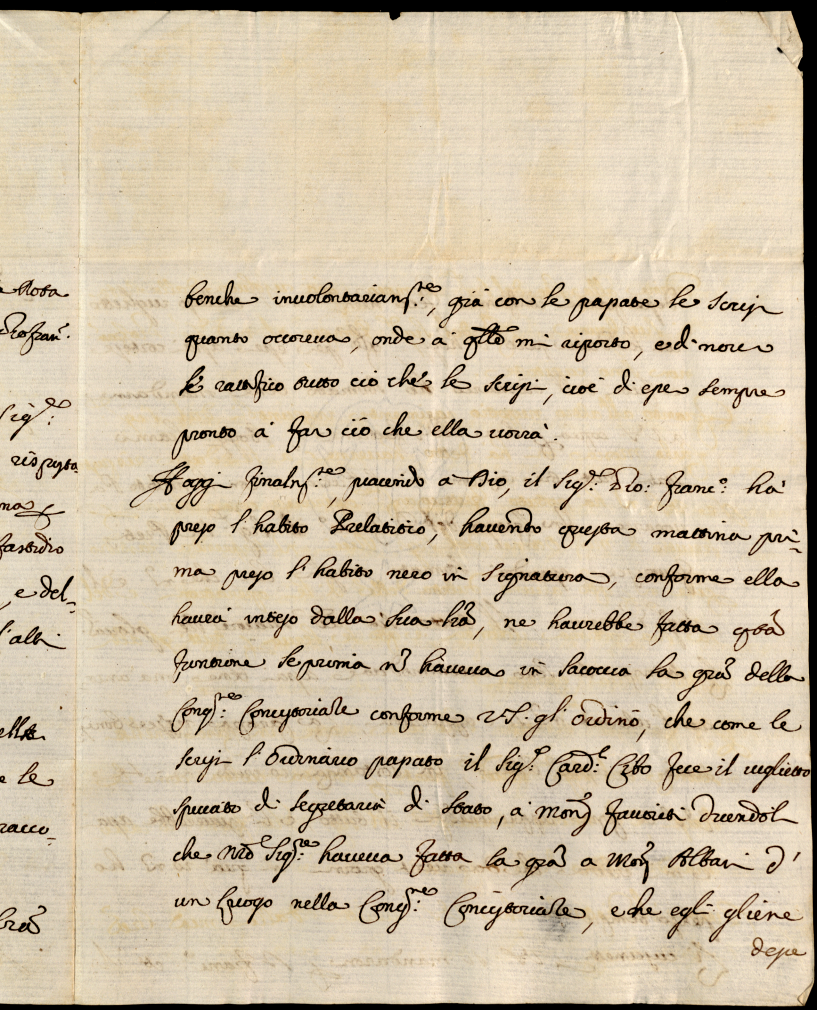 benche involontariam.te, già con le passate le scrissi
quanto occoreva, onde a q.llo mi riporto, e di novo
le ratifico tutto ciò che le scrissi, cioè di esser sempre
pronto a far ciò che ella vorrà.
Hoggi finalm.te, piacendo a Dio, il Sig.r Gio: Franc.o hà
preso l'habito Prelatitio, havendo questa mattina pri=
ma preso l'habito nero in Signatura, conforme ella
haverà inteso dalla sua, ne haurebbe fatta q.sta
funtione se prima nõ haveva in saccoccia la grã della
Cong.ne Concistoriale conforme V.S. gl'ordinò, che come le
scrissi l'Ordinario passato il Sig.r Card.l Cibo fece il viglietto
spiccato di Segretaria di Stato, a Mons.r Favoriti dicendoli
che Nrõ Sig.re haveva fatta la grã a Mons.r Albani d'
un luogo nella Cong.ne Concistoriale, e che egli gliene
desse
e Rota
Gio fran.
Sig.re
risposta
fastidio
, e del=
l'altri
ella
e le
racco=